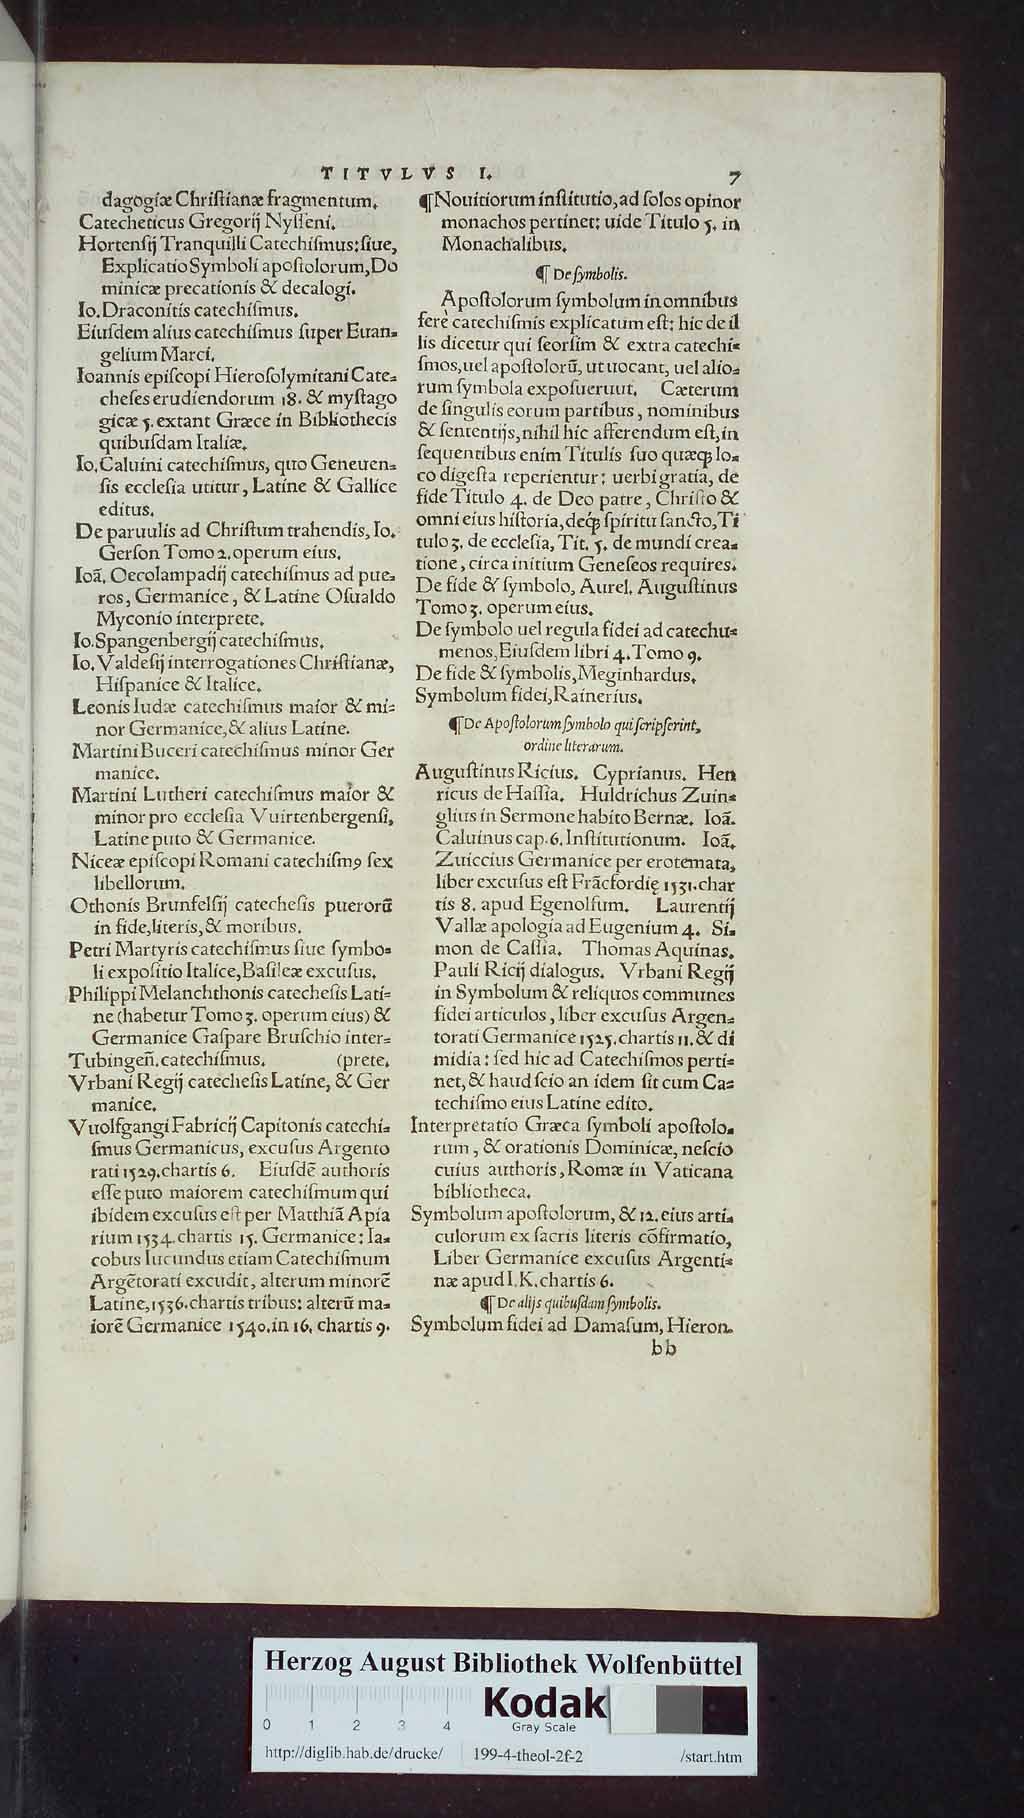 TITVLVS I. 7
dagogiæ Chriſtianæ fragmentum.
Catecheticus Gregorij Nyſſeni.
Hortenſij Tranquilli Catechiſmus: ſiue,
Explicatio Symboli apoſtolorum, Do
minicæ precationis & decalogi.
Io. Draconitis catechiſmus.
Eiuſdem alius catechiſmus ſuper Euan-
gelium Marci.
Ioannis epiſcopi Hieroſolymitani Cate-
cheſes erudiendorum 18. & myſtago
gicæ 5. extant Græce in Bibliothecis
quibuſdam Italiæ.
Io. Caluini catechiſmus, quo Geneuen-
ſis eccleſia utitur, Latine & Gallice
editus.
De paruulis ad Chriſtum trahendis, Io.
Gerſon Tomo 2. operum eius.
Ioā. Oecolampadij catechiſmus ad pue-
ros, Germanice, & Latine Oſualdo
Myconio interprete.
Io. Spangenbergij catechiſmus.
Io. Valdeſij interrogationes Chriſtianæ,
Hiſpanice & Italice.
Leonis Iudæ catechiſmus maior & mi-
nor Germanice, & alius Latine.
Martini Buceri catechiſmus minor Ger
manice.
Martini Lutheri catechiſmus maior &
minor pro eccleſia Vuirtenbergenſi,
Latine puto & Germanice.
Niceæ epiſcopi Romani catechiſmꝰ ſex
libellorum.
Othonis Brunfelſij catecheſis puerorū
in fide, literis, & moribus.
Petri Martyris catechiſmus ſiue ſymbo-
li expoſitio Italice, Baſileæ excuſus.
Philippi Melanchthonis catecheſis Lati-
ne (habetur Tomo 3. operum eius) &
Germanice Gaſpare Bruſchio inter-
Tubingen̄. catechiſmus. (prete.
Vrbani Regij catecheſis Latine, & Ger
manice.
Vuolfgangi Fabricij Capitonis catechi-
ſmus Germanicus, excuſus Argento
rati 1529. chartis 6. Eiuſdē authoris
eſſe puto maiorem catechiſmum qui
ibidem excuſus eſt per Matthiā Apia
rium 1534. chartis 15. Germanice: Ia-
cobus Iucundus etiam Catechiſmum
Argētorati excudit, alterum minorē
Latine, 1536. chartis tribus: alterū ma-
iorē Germanice 1540. in 16. chartis 9.
¶ Nouitiorum inſtitutio, ad ſolos opinor
monachos pertinet: uide Titulo 5. in
Monachalibus.
¶ De ſymbolis.
Apoſtolorum ſymbolum in omnibus
fere catechiſmis explicatum eſt: hic de il
lis dicetur qui ſeorſim & extra catechi-
ſmos, uel apoſtolorū, ut uocant, uel alio-
rum ſymbola expoſueruut. Cæterum
de ſingulis eorum partibus, nominibus
& ſententijs, nihil hic afferendum eſt, in
ſequentibus enim Titulis ſuo quæq; lo-
co digeſta reperientur: uerbi gratia, de
fide Titulo 4. de Deo patre, Chriſto &
omni eius hiſtoria, deq́; ſpiritu ſancto, Ti
tulo 3. de eccleſia, Tit. 5. de mundi crea-
tione, circa initium Geneſeos requires.
De fide & ſymbolo, Aurel. Auguſtinus
Tomo 3. operum eius.
De ſymbolo uel regula fidei ad catechu-
menos, Eiuſdem libri 4. Tomo 9.
De fide & ſymbolis, Meginhardus.
Symbolum fidei, Rainerius.
¶ De Apoſtolorum ſymbolo qui ſcripſerint,
ordine literarum.
Auguſtinus Ricius. Cyprianus. Hen
ricus de Haſſia. Huldrichus Zuin-
glius in Sermone habito Bernæ. Ioā.
Caluinus cap. 6. Inſtitutionum. Ioā.
Zuiccius Germanice per erotemata,
liber excuſus eſt Frācfordię 1531. char
tis 8. apud Egenolfum. Laurentij
Vallæ apologia ad Eugenium 4. Si-
mon de Caſſia. Thomas Aquinas.
Pauli Ricij dialogus. Vrbani Regij
in Symbolum & reliquos communes
fidei articulos, liber excuſus Argen-
torati Germanice 1525. chartis 11. & di
midia: ſed hic ad Catechiſmos perti-
net, & haud ſcio an idem ſit cum Ca-
techiſmo eius Latine edito.
Interpretatio Græca ſymboli apoſtolo-
rum, & orationis Dominicæ, neſcio
cuius authoris, Romæ in Vaticana
bibliotheca.
Symbolum apoſtolorum, & 12. eius arti-
culorum ex ſacris literis cōfirmatio,
Liber Germanice excuſus Argenti-
næ apud I. K. chartis 6.
¶ De alijs quibuſdam ſymbolis.
Symbolum fidei ad Damaſum, Hieron.
bb
Herzog August Bibliothek Wolfenbüttel
Kodak
Gray Scale
0 1 2 3 4
http://diglib.hab.de/drucke/ 199-4-theol-2f-2 /start.htm